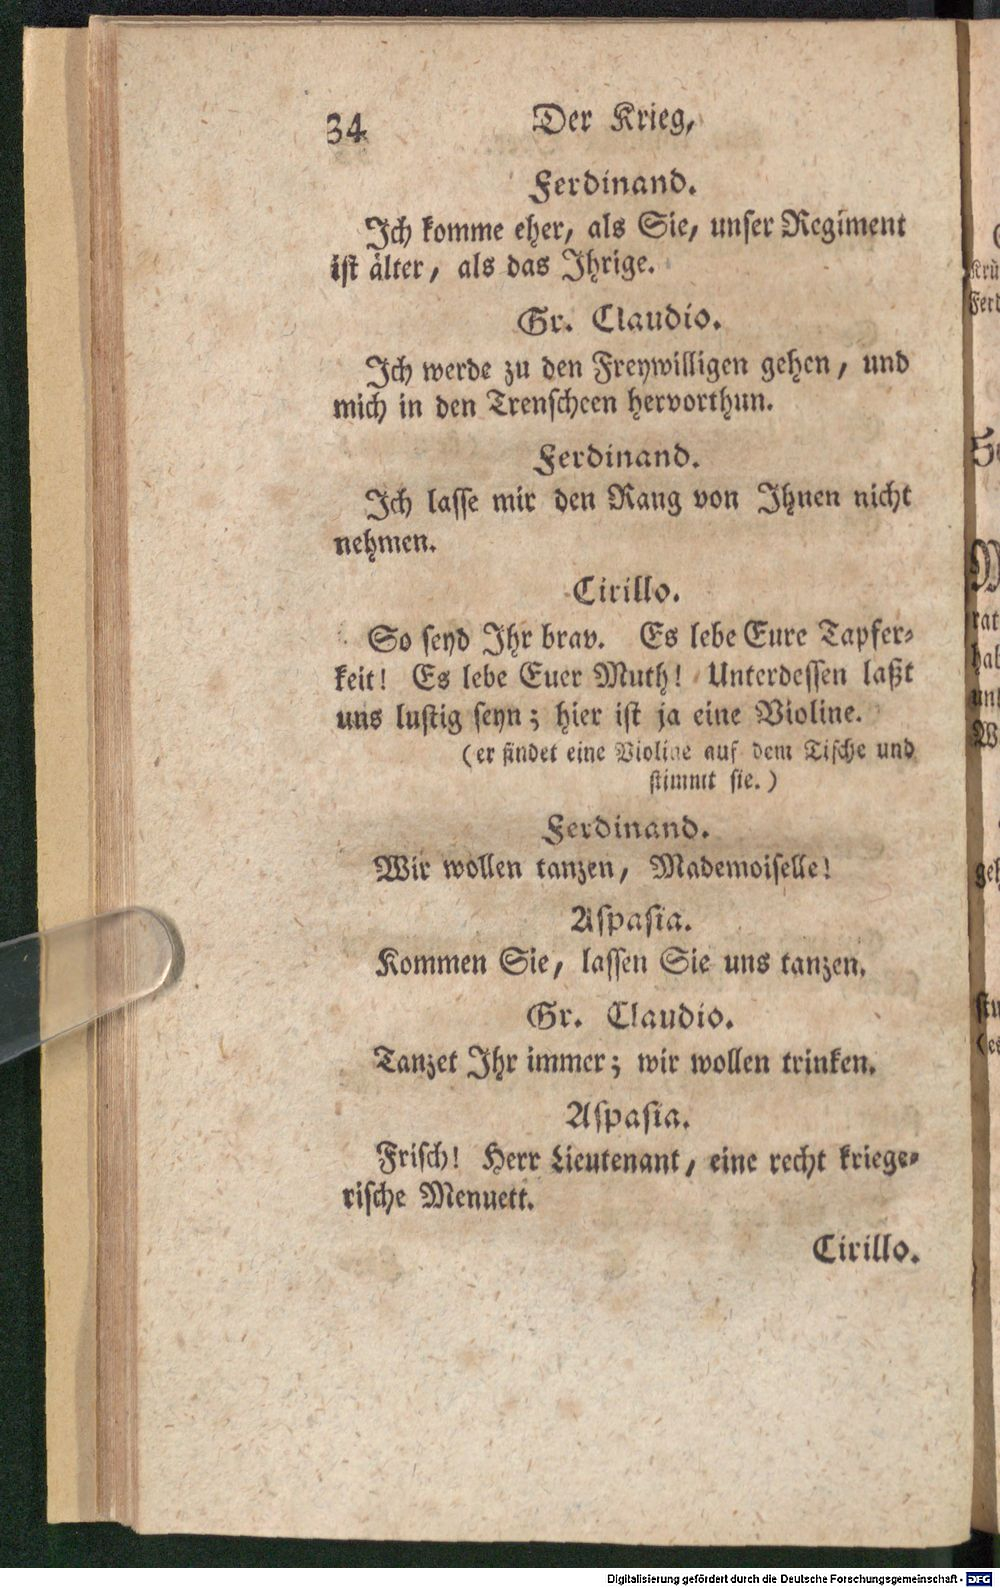 34 Der Krieg,
Ferdinand.
Ich komme eher, als Sie, unser Regiment
ist älter, als das Ihrige.
Gr. Claudio.
Ich werde zu den Freywilligen gehen, und
mich in den Trenscheen hervorthun.
Ferdinand.
Ich lasse mir den Rang von Ihnen nicht
nehmen.
Cirillo.
So seyd Ihr brav. Es lebe Eure Tapfer-
keit! Es lebe Euer Muth! Unterdessen laßt
uns lustig seyn; hier ist ja eine Violine.
(er findet eine Violine auf dem Tische und
stimmt sie.)
Ferdinand.
Wir wollen tanzen, Mademoiselle!
Aspasia.
Kommen Sie, lassen Sie uns tanzen.
Gr. Claudio.
Tanzet Ihr immer; wir wollen trinken.
Aspasia.
Frisch! Herr Lieutenant, eine recht kriege-
rische Menuett.
Cirillo.
Digitalisierung gefördert durch die Deutsche Forschungsgemeinschaft - DFG